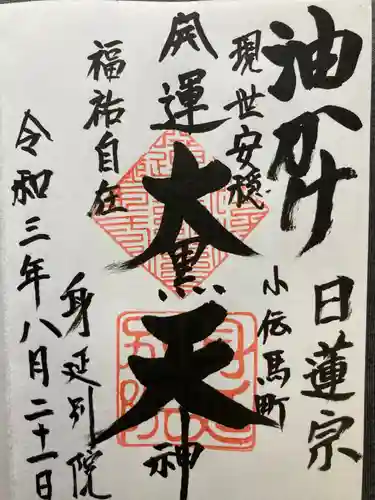 油かけ
日蓮宗
現世安穏
小伝馬町
開運
大黒天
神
福祐自在
身延別院
令和三年八月二十一日